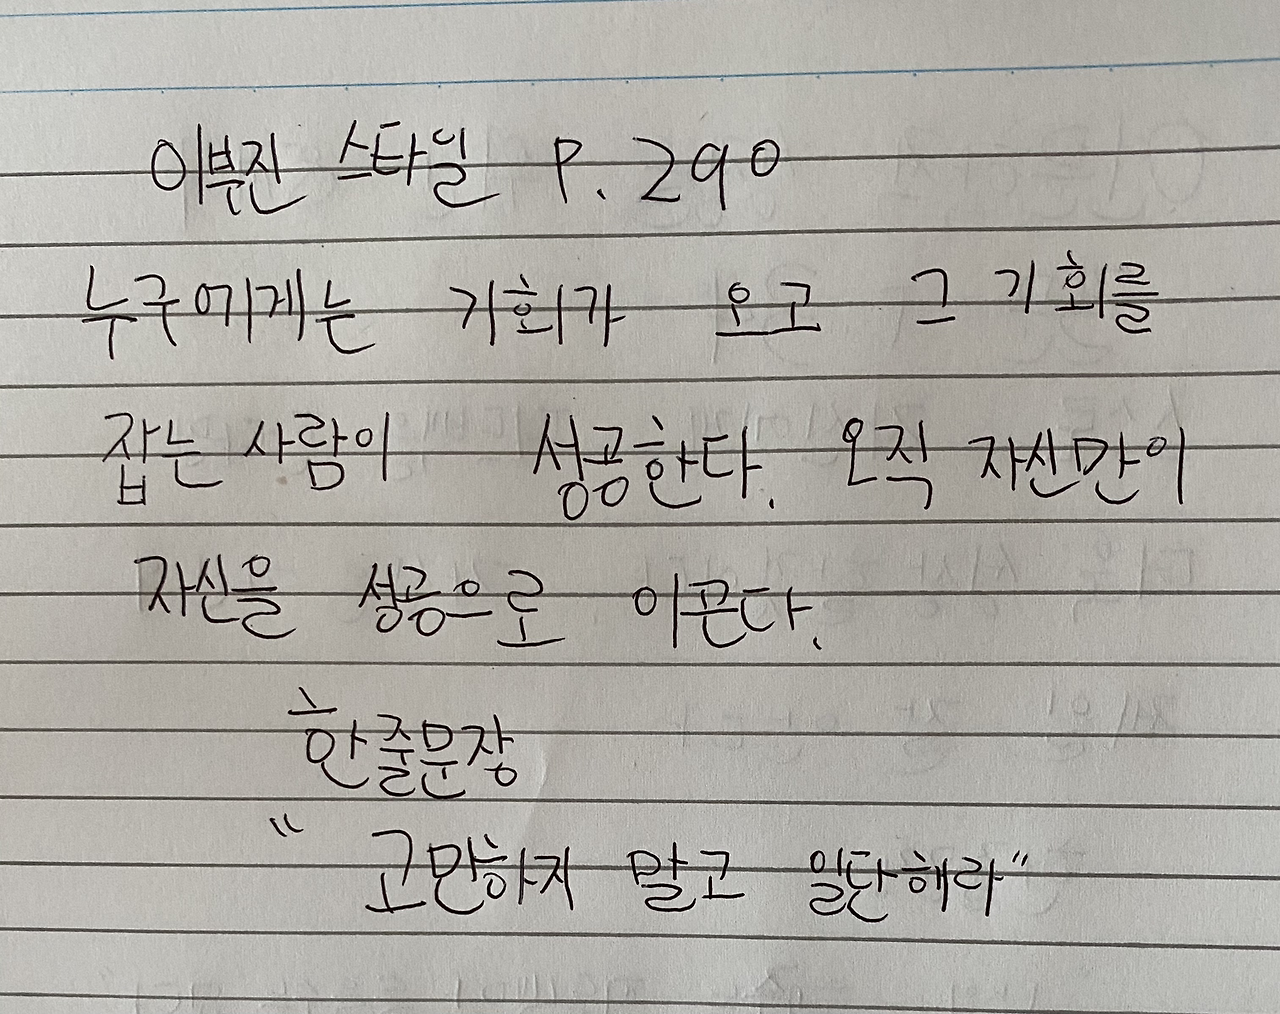 이부진 스타일 P. 290
누구에게는 기회가 오고 그 기회를
잡는 사람이 성공한다. 오직 자신만이
자신을 성공으로 이끈다.
한줄문장
"고민하지 말고 일단해라"